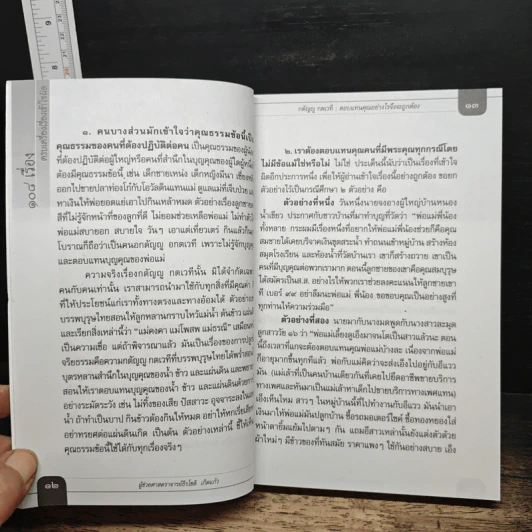 ๑๐๘ เรื่อง
๑. คนบางส่วนมักเข้าใจว่าคุณธรรมข้อนี้เป็น
คุณธรรมของคนที่ต้องปฏิบัติต่อคน เป็นคุณธรรมของผู้น้อย
ที่ต้องปฏิบัติต่อผู้ใหญ่หรือคนที่สำนึกในบุญคุณของผู้ใดผู้หนึ่ง
ต้องมีคุณธรรมนี้ เช่น เด็กชายเหน่ง เด็กหญิงมีนา
ออกไปขายปลาท่องโก๋กับโอวัลตินแทนแม่ ดูแลแม่ที่เจ็บป่วย
หาเงินให้พ่อยอดแย่เอาไปกินเหล้าหมด ตัวอย่างเรื่องลูกชาย
สีที่ไม่รู้จักหน้าที่ของลูกที่ดี ไม่ยอมช่วยเหลือพ่อแม่ ไม่ทำตัวให้
พ่อแม่สบายอก สบายใจ วันๆ เอาแต่เที่ยวเตร่ กินแล้วก็นอน
โบราณก็ถือว่าเป็นคนอกตัญญู อกตเวที เพราะไม่รู้จักบุญคุณ
และตอบแทนบุญคุณของพ่อแม่
ความจริงเรื่องกตัญญู กตเวทีนั้น มิได้จำกัดเฉพาะ
คนกับคนเท่านั้น เราสามารถนำมาใช้กับทุกสิ่งที่มีคุณค่า
ที่ให้ประโยชน์แก่เราทั้งทางตรงและทางอ้อมได้ ตัวอย่าง
บรรพบุรุษไทยสอนให้ลูกหลานกราบไหว้แม่น้ำ ต้นข้าว แผ่นดิน
และเรียกสิ่งเหล่านี้ว่า "แม่คงคา แม่โพสพ แม่ธรณี"
เป็นความเชื่อ แต่ถ้าพิจารณาแล้ว มันเป็นเรื่องของการปลูก
จริยธรรมคือความกตัญญู กตเวทีที่บรรพบุรุษไทยได้พร่ำสอน
บุตรหลานสำนึกในคุณของน้ำ ข้าว และแผ่นดิน และพยายาม
สอนให้เราตอบแทนบุญคุณของน้ำ ข้าว และแผ่นดินด้วยการ
อย่างระมัดระวัง เช่น ไม่ทิ้งของเสีย ปัสสาวะ อุจจาระลงใน
น้ำ ถ้าทำเป็นบาป กินข้าวต้องกินให้หมด อย่าให้หกเรี่ยเสีย
อย่าทรยศต่อแผ่นดินเกิด เป็นต้น ตัวอย่างเหล่านี้ ชี้ให้เห็น
คุณธรรมข้อนี้ใช้ได้กับทุกเรื่องจริงๆ
๑๒
ผู้ช่วยศาสตราจารย์ธีรโชติ เกิดแก้ว
กตัญญู กตเวที : ตอบแทนคุณอย่างไรจึงจะถูกต้อง
๑๓
๒. เราต้องตอบแทนคุณคนที่มีพระคุณทุกกรณีโดย
ไม่มีข้อแม้ใช่หรือไม่ ไม่ใช่ ประเด็นนี้นับว่าเป็นเรื่องที่เข้าใจ
ผิดอีกประการหนึ่ง เพื่อให้ผู้อ่านเข้าใจเรื่องนี้อย่างถูกต้อง ขอยก
ตัวอย่างไว้เป็นกรณีศึกษา ๒ ตัวอย่าง คือ
ตัวอย่างที่หนึ่ง วันหนึ่งนายจงอางผู้ใหญ่บ้านหนอง
น้ำเขียว ประกาศกับชาวบ้านที่มาทำบุญที่วัดว่า "พ่อแม่พี่น้อง
ทั้งหลาย กระผมมีเรื่องหนึ่งที่อยากให้พ่อแม่พี่น้องช่วยก็คือคุณ
สมชายได้เคยบริจาคเงินขุดสระน้ำ ทำถนนเข้าหมู่บ้าน สร้างห้อง
สมุดโรงเรียน และห้องน้ำที่วัดบ้านเรา เขาก็สร้างถวาย เขาเป็น
คนที่มีบุญคุณต่อพวกเรามาก ตอนนี้ลูกชายของเขาคือคุณสมบุรุษ
ได้สมัครเป็นส.ส. อย่างไรให้พวกเราช่วยลงคะแนนให้ลูกชายเขา
ที่ เบอร์ ๙๙ อย่าลืมนะพ่อแม่ พี่น้อง ขอขอบคุณเป็นอย่างสูงที่
ทุกท่านให้ความร่วมมือ"
ตัวอย่างที่สอง นายมากับนางมดพูดกับนางสาวละมุด
ลูกสาววัย ๑๖ ว่า "พ่อแม่เลี้ยงดูเอ็งมาจนโตเป็นสาวแล้วนะ ตอน
นี้ถึงเวลาที่แกจะต้องตอบแทนคุณพ่อแม่บ้างละ เนื่องจากพ่อแม่
ก็อายุมากขึ้นทุกทีแล้ว พ่อกับแม่คิดว่าจะส่งเอ็งไปอยู่กับอีแวว
มัน (แม่เล้าที่เป็นคนบ้านเดียวกันที่เคยไปยึดอาชีพขายบริการ
ทางเพศและหันมาเป็นแม่เล้าหาเด็กไปขายบริการทางเพศแทน)
เอ็งเห็นไหม สาวๆ ในหมู่บ้านนี้ที่ไปทำงานกับอีแวว มันนำเอา
เงินมาให้พ่อแม่มันปลูกบ้าน ซื้อรถมอเตอร์ไซค์ ซื้อทองหยองใส่
หน้าตายิ้มแย้มไปตามๆ กัน แถมอีสาวเหล่านั้นยังแต่งตัวด้วย
ผ้าใหม่ๆ มีข้าวของที่ทันสมัย ราคาแพงๆ ใช้กันอย่างสบาย เอ็ง